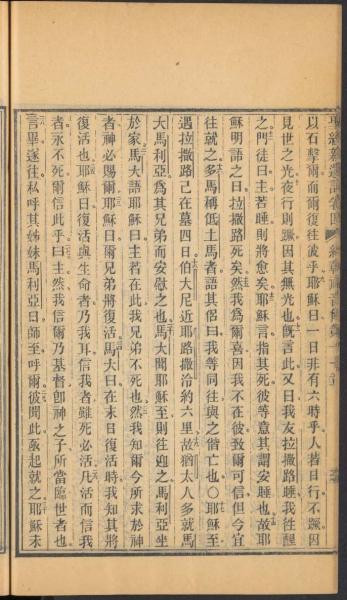 以石擊爾而爾復往彼乎耶穌曰一日非有六時乎人若日行不蹶因
見世之光夜行則蹶因其無光也既言此又曰我友拉撒路睡我徃醒
之門徒曰主若睡則將愈矣耶穌言指其死彼等意其謂安睡也故耶
穌明語之曰拉撒路死矣然我爲爾喜因我不在彼致爾可信但今宜
往就之多馬稱低土馬者語其侶曰我等同往與之偕亡也〇耶穌至
遇拉撒路已在墓四日伯大尼近耶路撒冷約六里故猶太人多就馬
大馬利亞爲其兄弟而安慰之也馬大聞耶穌至則往迎之馬利亞坐
於家馬大語耶穌曰主若在此我兄弟不死也然我知爾今所求於神
者神必賜爾耶穌曰爾兄弟將復活馬大曰在末日復活時我知其將
復活也耶穌曰復活與生命者乃我耳信我者雖死必活凡活而信我
者永不死爾信此乎曰主然我信爾乃基督卽神之子所當臨世者也
言畢遂往私呼其姊妹馬利亞曰師至呼爾彼聞此亟起就之耶穌未